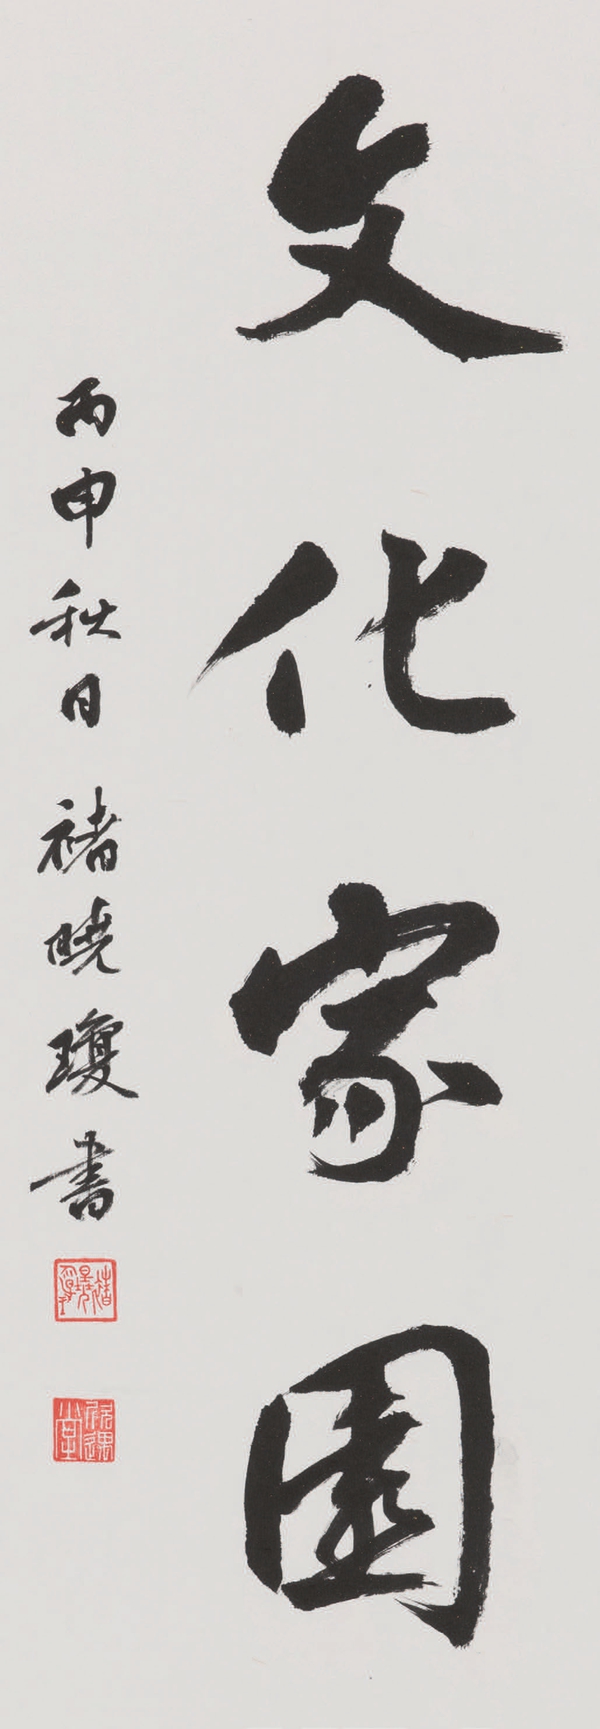 文化家園
丙申秋日褚曉瓊書